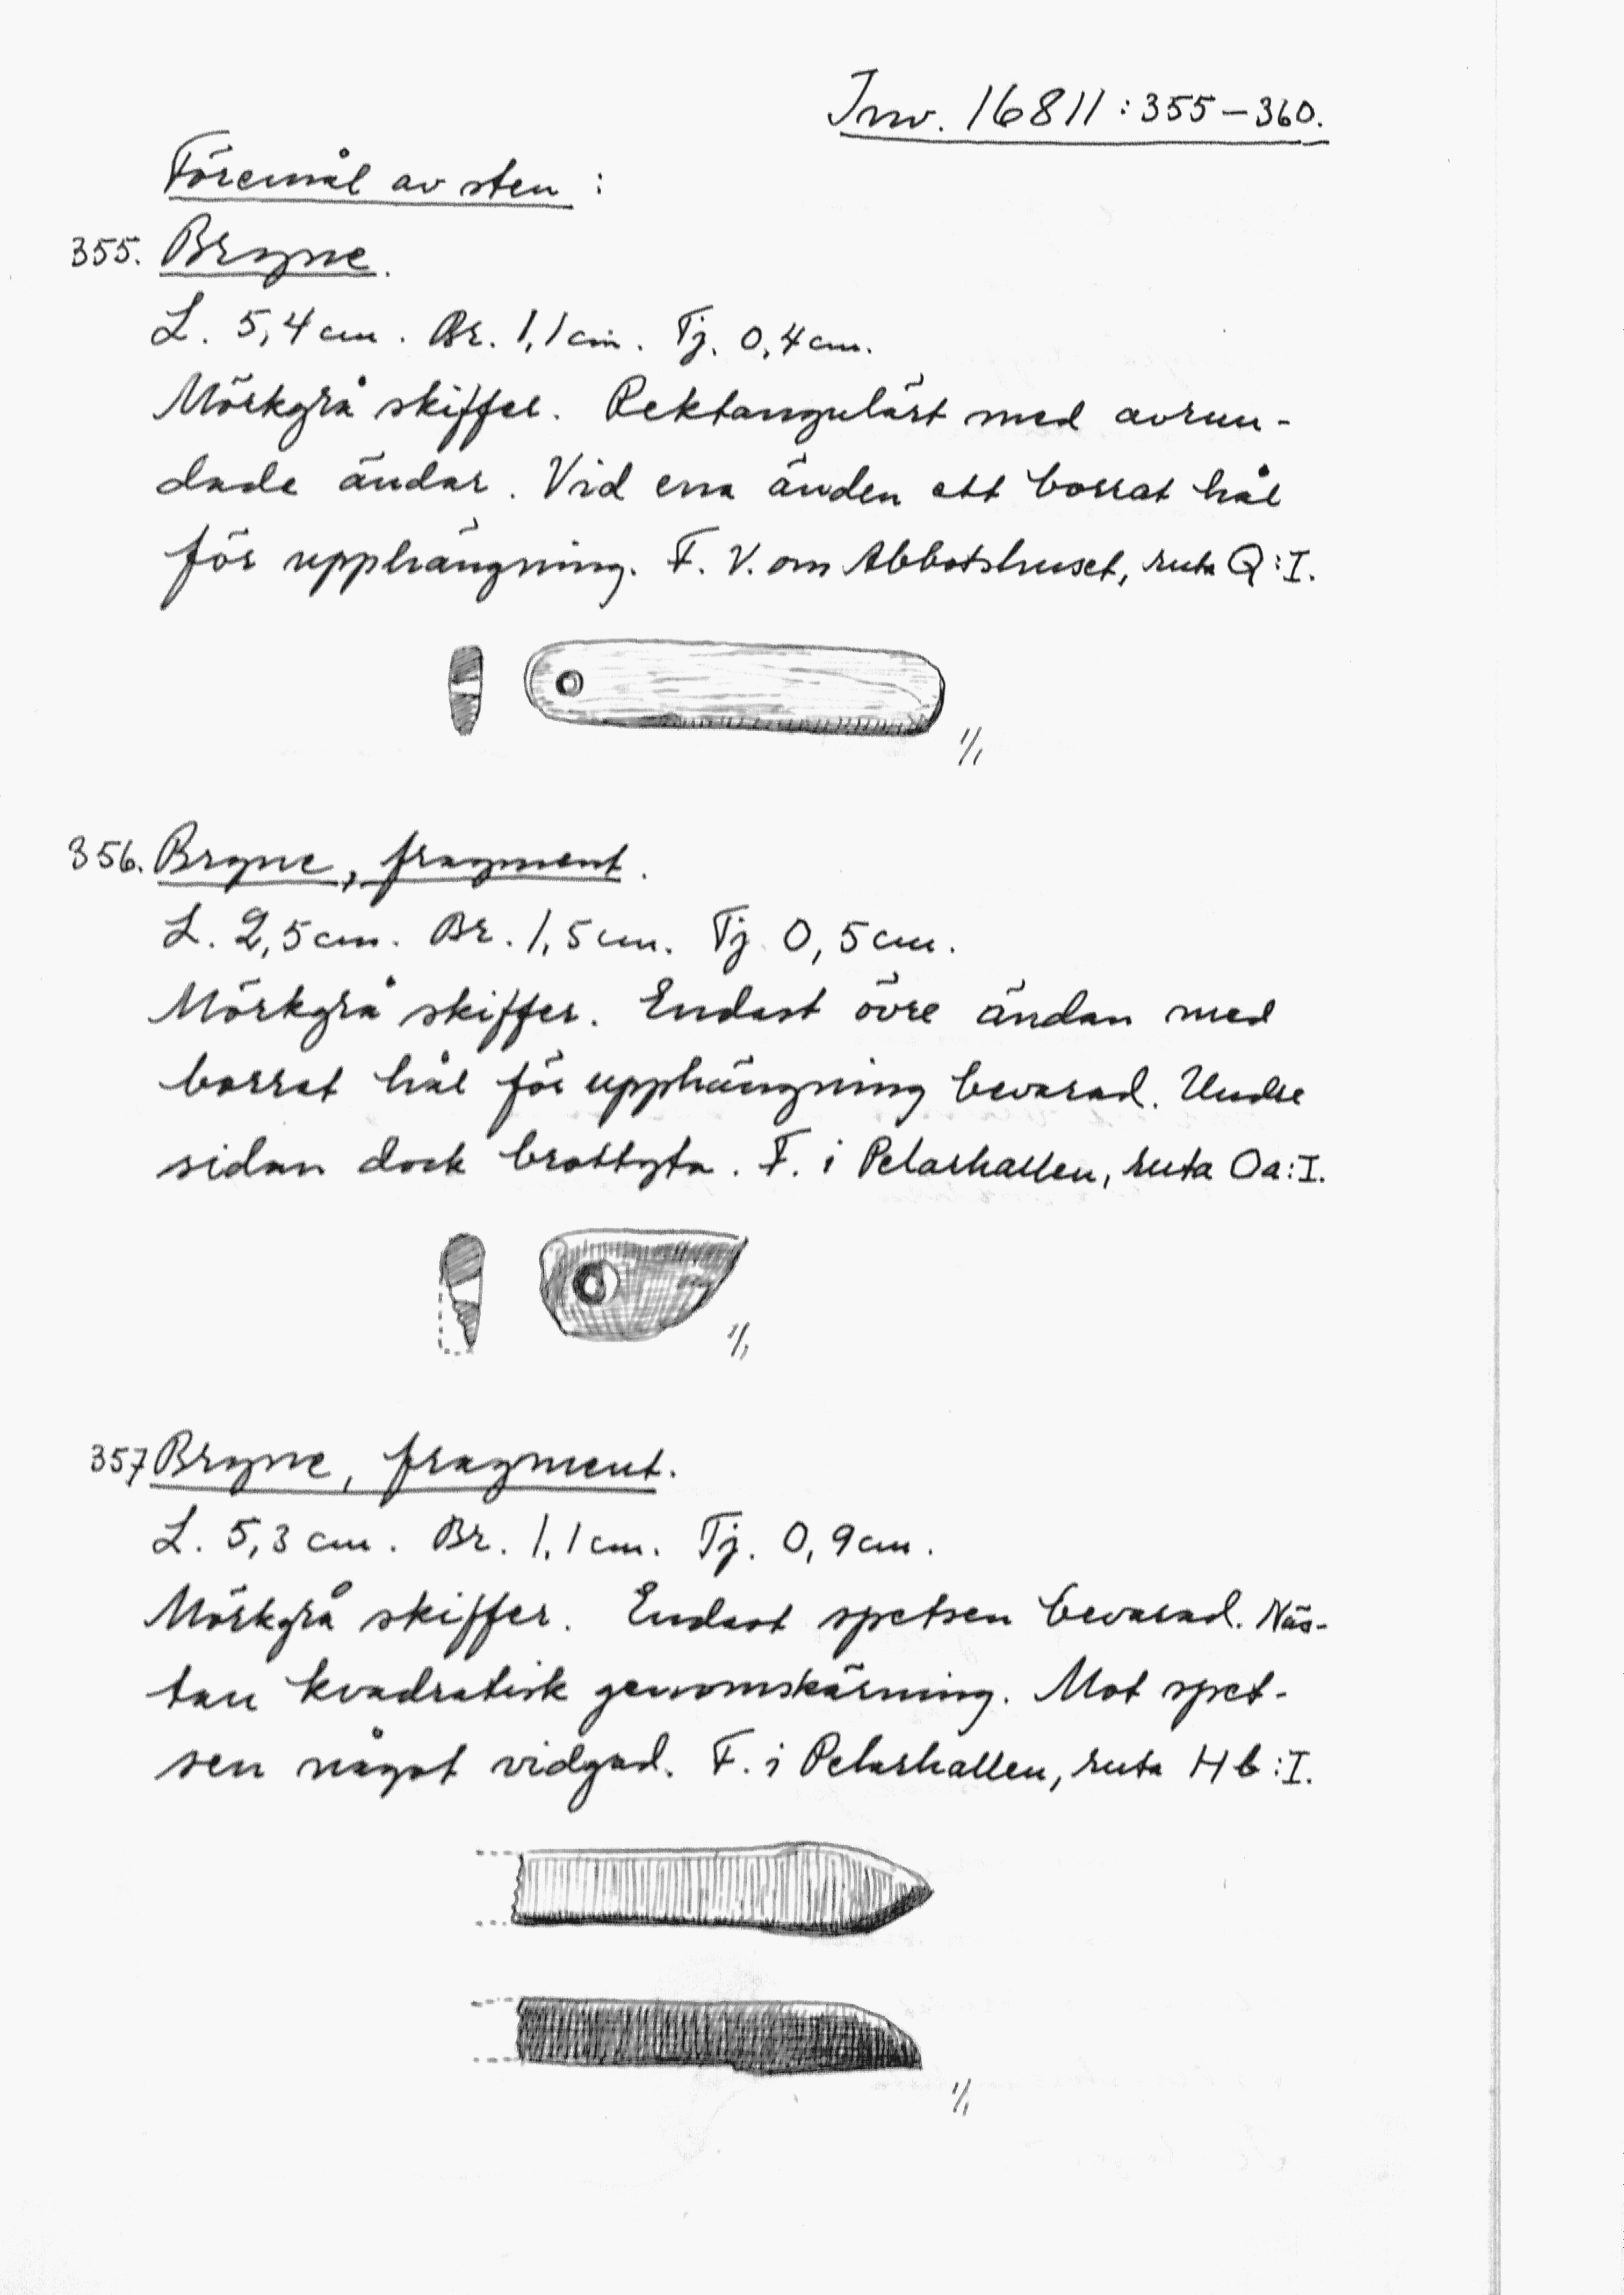 Inv. 16811:355–360.
Föremål av sten:
355. Bryne.
L. 5,4 cm. Br. 1,1 cm. Tj. 0,4 cm.
Mörkgrå skiffer. Rektangulärt med avrun-
dade ändar. Vid ena änden ett borrat hål
för upphängning. F. V. om Abbotshuset, ruta Q:I.
1/1
356. Bryne, fragment.
L. 2,5 cm. Br. 1,5 cm. Tj. 0,5 cm.
Mörkgrå skiffer. Endast övre ändan med
borrat hål för upphängning bevarad. Undre
sidan dock brottyta. F. i Pelarhallen, ruta Oa:I.
1/1
357 Bryne, fragment.
L. 5,3 cm. Br. 1,1 cm. Tj. 0,9 cm.
Mörkgrå skiffer. Endast spetsen bevarad. Näs-
tan kvadratisk genomskärning. Mot spet-
sen något vidgad. F. i Pelarhallen, ruta Hb:I.
1/1